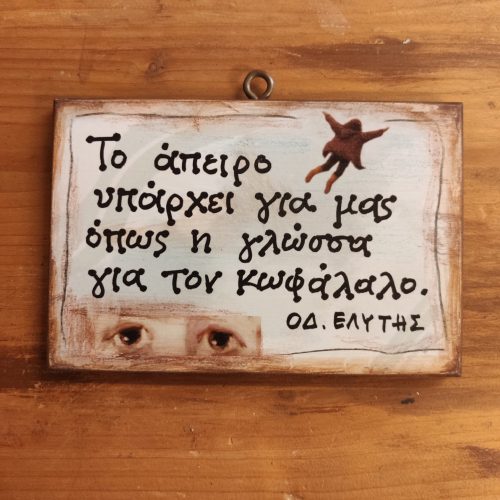 Το άπειρο
υπάρχει για μας
όπως η γλώσσα
για τον κωφάλαλο.
ΟΔ. ΕΛΥΤΗΣ